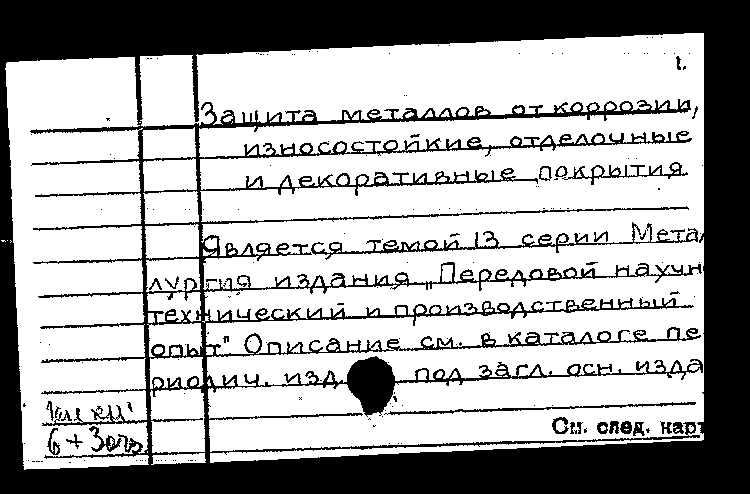 1.
Защита металлов от коррозии,
износостойкие, отделочные
и декоративные покрытия
Является темой 13 серии Метал
лургия издания „Передовой научн
технический и производственный
опыт". Описание см. в каталоге пе
риодич. изд. под загл. осн. изда
6 + 3
См. след. карт